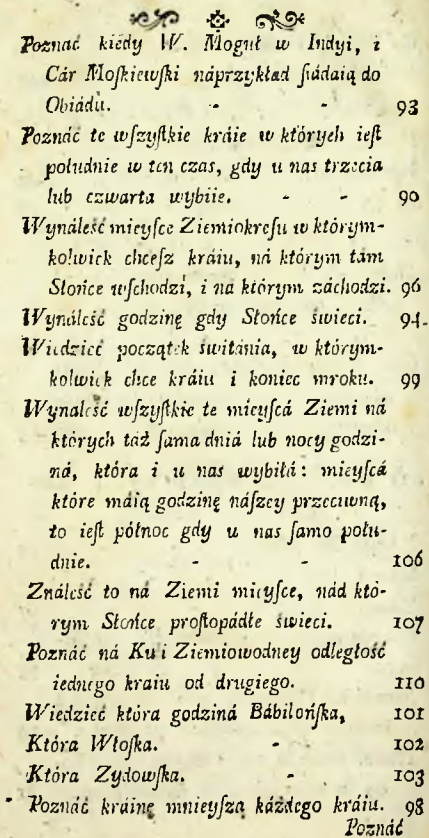 Poznáć kiedy W. Moguł w Indyi, i
Cár Moſkiewſki náprzykład ſiádáią do
Obiádu. - - 93
Poznáć te wſzyſtkie kráie w których ieſt
południe w ten czas, gdy u nas trzecia
lub czwarta wybiie. - - 90
Wynáleść mieyſce Ziemiokreſu w którym-
kolwiek chceſz kráiu, ná którym tám
Słońce wſchodzi, i na którym záchodzi. 96
Wynáleść godzinę gdy Słońce świeci. 94.
Wiedzieć początek świtánia, w którym-
kolwiek chce kráiu i koniec mroku. 99
Wynaleść wſzyſtkie te mieyſcá Ziemi ná
których táż ſama dniá lub nocy godzi-
ná, która i u nas wybiłá: mieyſcá
które máią godzinę náſzey przeciwną,
to ieſt północ gdy u nas ſamo połu-
dnie. - - 106
Ználeść to ná Ziemi mieyſce, nád któ-
rym Słońce proſtopádłe świeci. 107
Poznáć ná Kuli Ziemiowodney odległość
iednego kraiu od drugiego. 110
Wiedzieć która godziná Bábilońſka, 101
Która Włoſka. - 102
Która Zydowſka. - 103
Poznáć kráinę mnieyſzą káżdego kráiu. 98
Poznáć